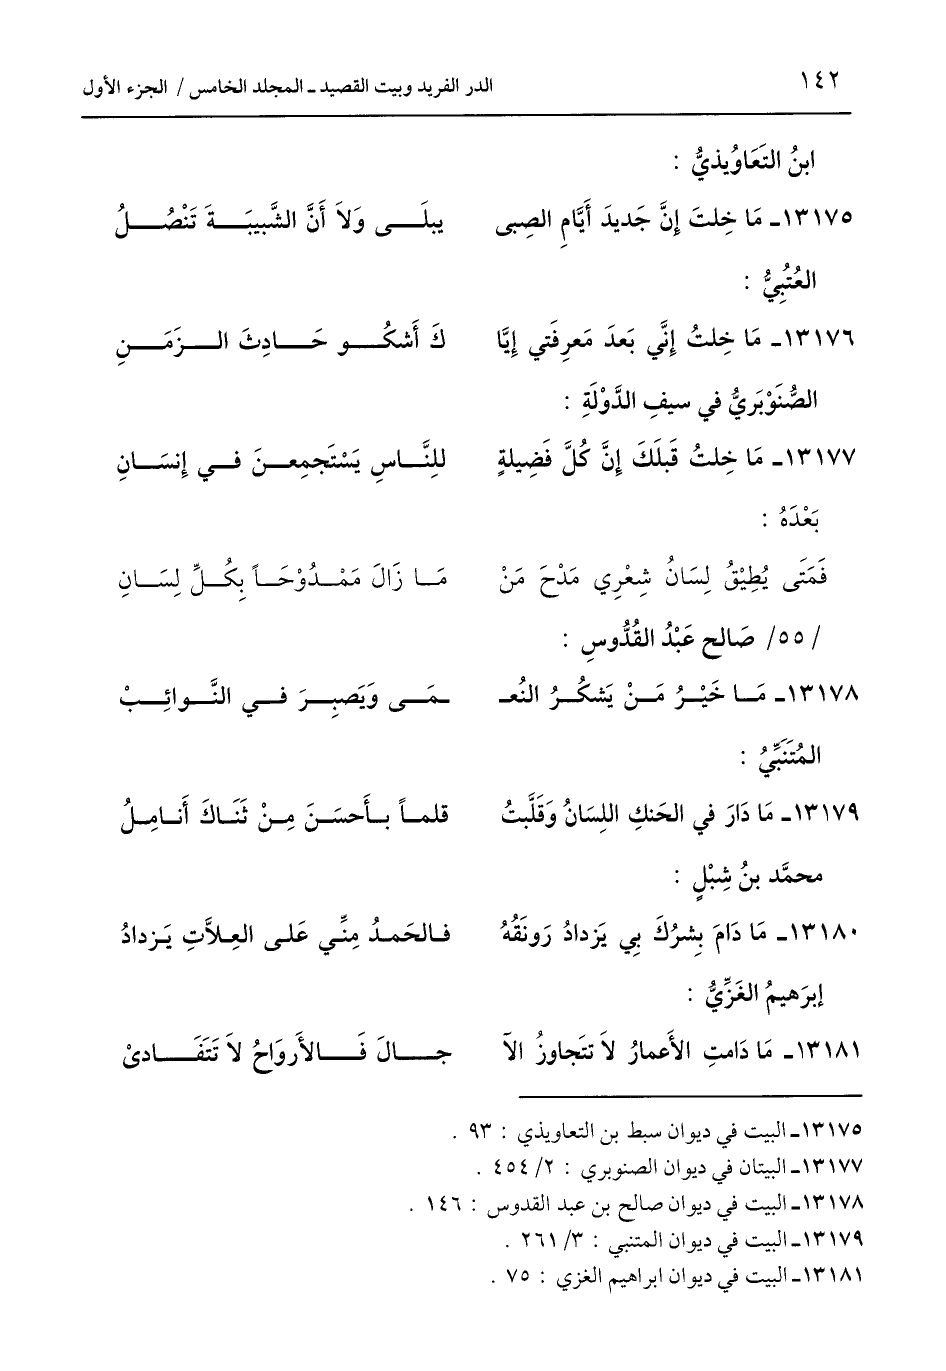 ١٤٢ الدر الفريد وبيت القصيد ـ المجلد الخامس / الجزء الأول
ابنُ التَعَاوُيذيُّ :
١٣١٧٥ـ مَا خِلتَ إِنَّ جَديدَ أَيَّامِ الصِبى يبلَـــى وَلاَ أَنَّ الشَّبيبَـــةَ تَنْصُـــلُ
العُتُبِيُّ :
١٣١٧٦ـ مَا خِلتُ إِنَّي بَعدَ مَعرِفَتي إِيَّا كَ أَشكُـــو حَـــادِثَ الـــزَمَـــنِ
الصَُنَوْبَرِيُّ في سيفِ الدَّوْلَةِ :
١٣١٧٧ـ مَا خِلتُ قَبلَكَ إِنَّ كُلَّ فَضِيلةٍ للِنَّـــاسِ يَسْتَجمِعـــنَ فـــي إِنسَـــانِ
بَعْدَهُ :
فَمَتَى يُطِيْقُ لِسَانُ شِعْرِي مَدْحَ مَنْ مَـــا زَالَ مَمْـــدُوْحَـــاً بِكُـــلِّ لِسَـــانِ
/ ٥٥/ صَالح عَبْدُ القُدُّوسِ :
١٣١٧٨ـ مَـــا خَيْـــرُ مَـــنْ يَشكُـــرُ النُعـ ـمَـــى وَيَصبِـــرَ فـــي النَّـــوائِـــبْ
المُتَنَبِّيُ :
١٣١٧٩ـ مَا دَارَ في الحَنكِ اللِسَانُ وَقَلَّبتُ قلمـــاً بـــأَحسَـــنَ مِـــنْ ثَنَـــاكَ أَنـــامِـــلُ
محمَّد بنُ شِبْلٍ :
١٣١٨٠ـ مَا دَامَ بِشرُكَ بِي يَزدادُ رَونَقُهُ فـــالحَمـــدُ مِنِّـــي عَلـــى العِـــلاَّتِ يَـــزدادُ
إبرَهيمُ الغَزِّيُّ :
١٣١٨١ـ مَا دَامتِ الأَعمارُ لاَ تتجاوزُ الآ جـــالَ فَـــالأَروَاحُ لاَ تَتَفَـــادىْ
١٣١٧٥ـ البيت في ديوان سبط بن التعاويذي : ٩٣ .
١٣١٧٧ـ البيتان في ديوان الصنوبري : ٢/ ٤٥٤ .
١٣١٧٨ـ البيت في ديوان صالح بن عبد القدوس : ١٤٦ .
١٣١٧٩ـ البيت في ديوان المتنبي : ٣/ ٢٦١ .
١٣١٨١ـ البيت في ديوان ابراهيم الغزي : ٧٥ .